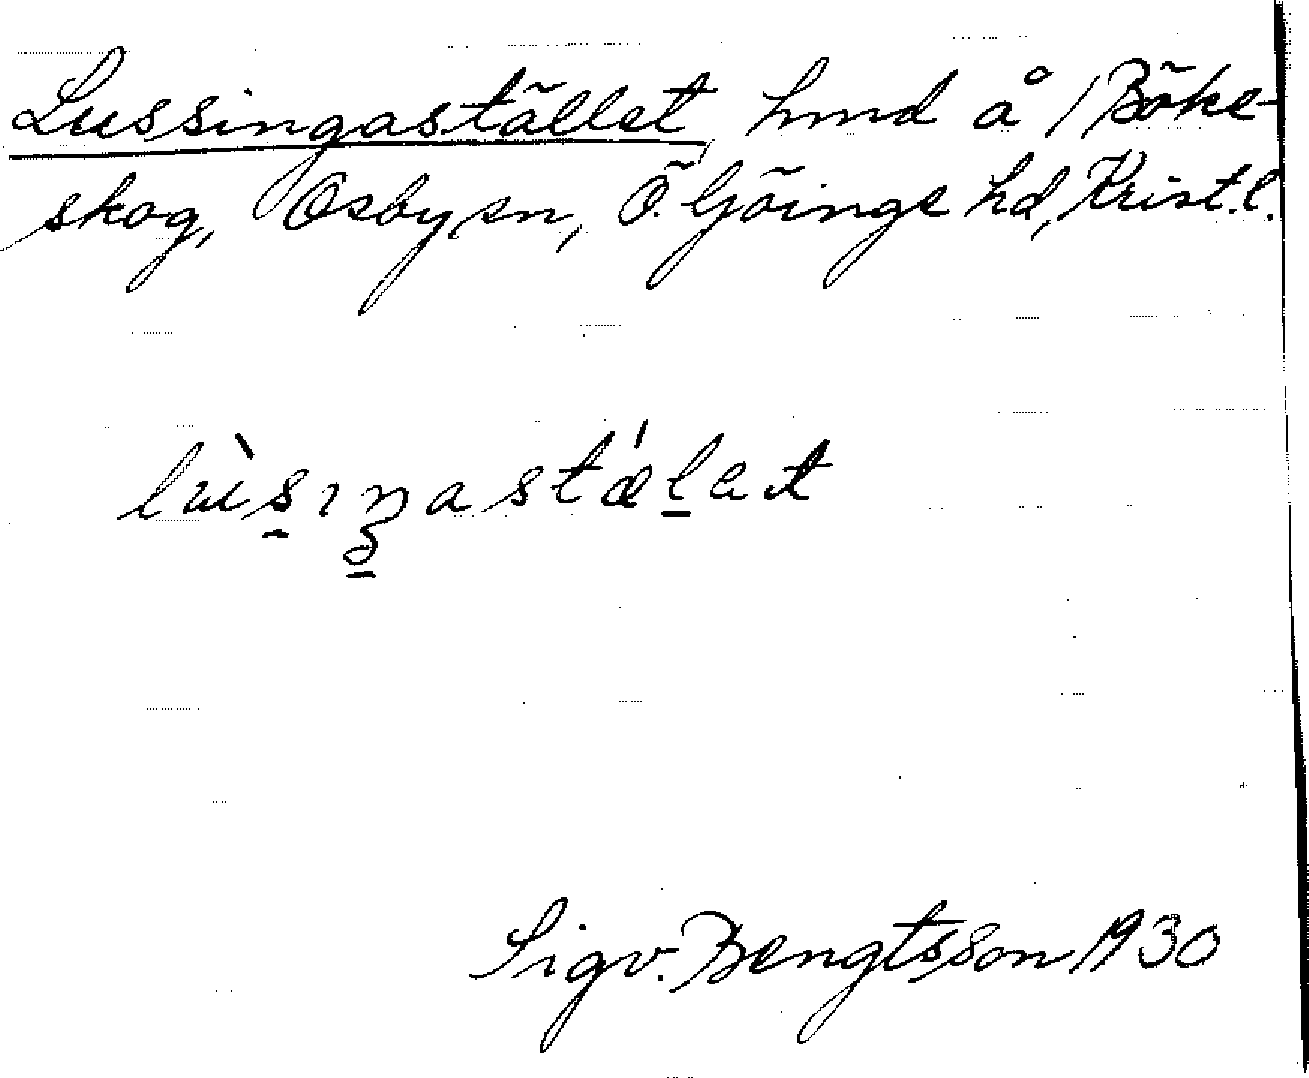 Lussingastället, hmd å 1 Böke-
skog, Osby sn, Ö. Göinge hd, Krist. l.
lùsiŋastǽlet
Sigv. Bengtsson 1930